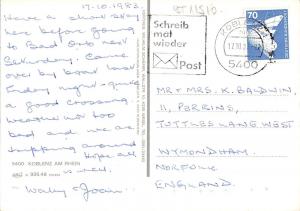 17-10-1983.
Have a short stay
here before going
to Bad Orb next
Saturday. Came
over by boat last
Friday night - quite
a good crossing.
Weather not too
bad and we are
hopping around
Hope all
is well.
- Wally + Joan -
5400 KOBLENZ AM RHEIN
Schreib
mal
wieder
Post
5400
70
MR + MRS K. BALDWIN
11, PERRINS,
TUTTLES LANE WEST
WYMONDHAM.
NORFOLK
ENGLAND.